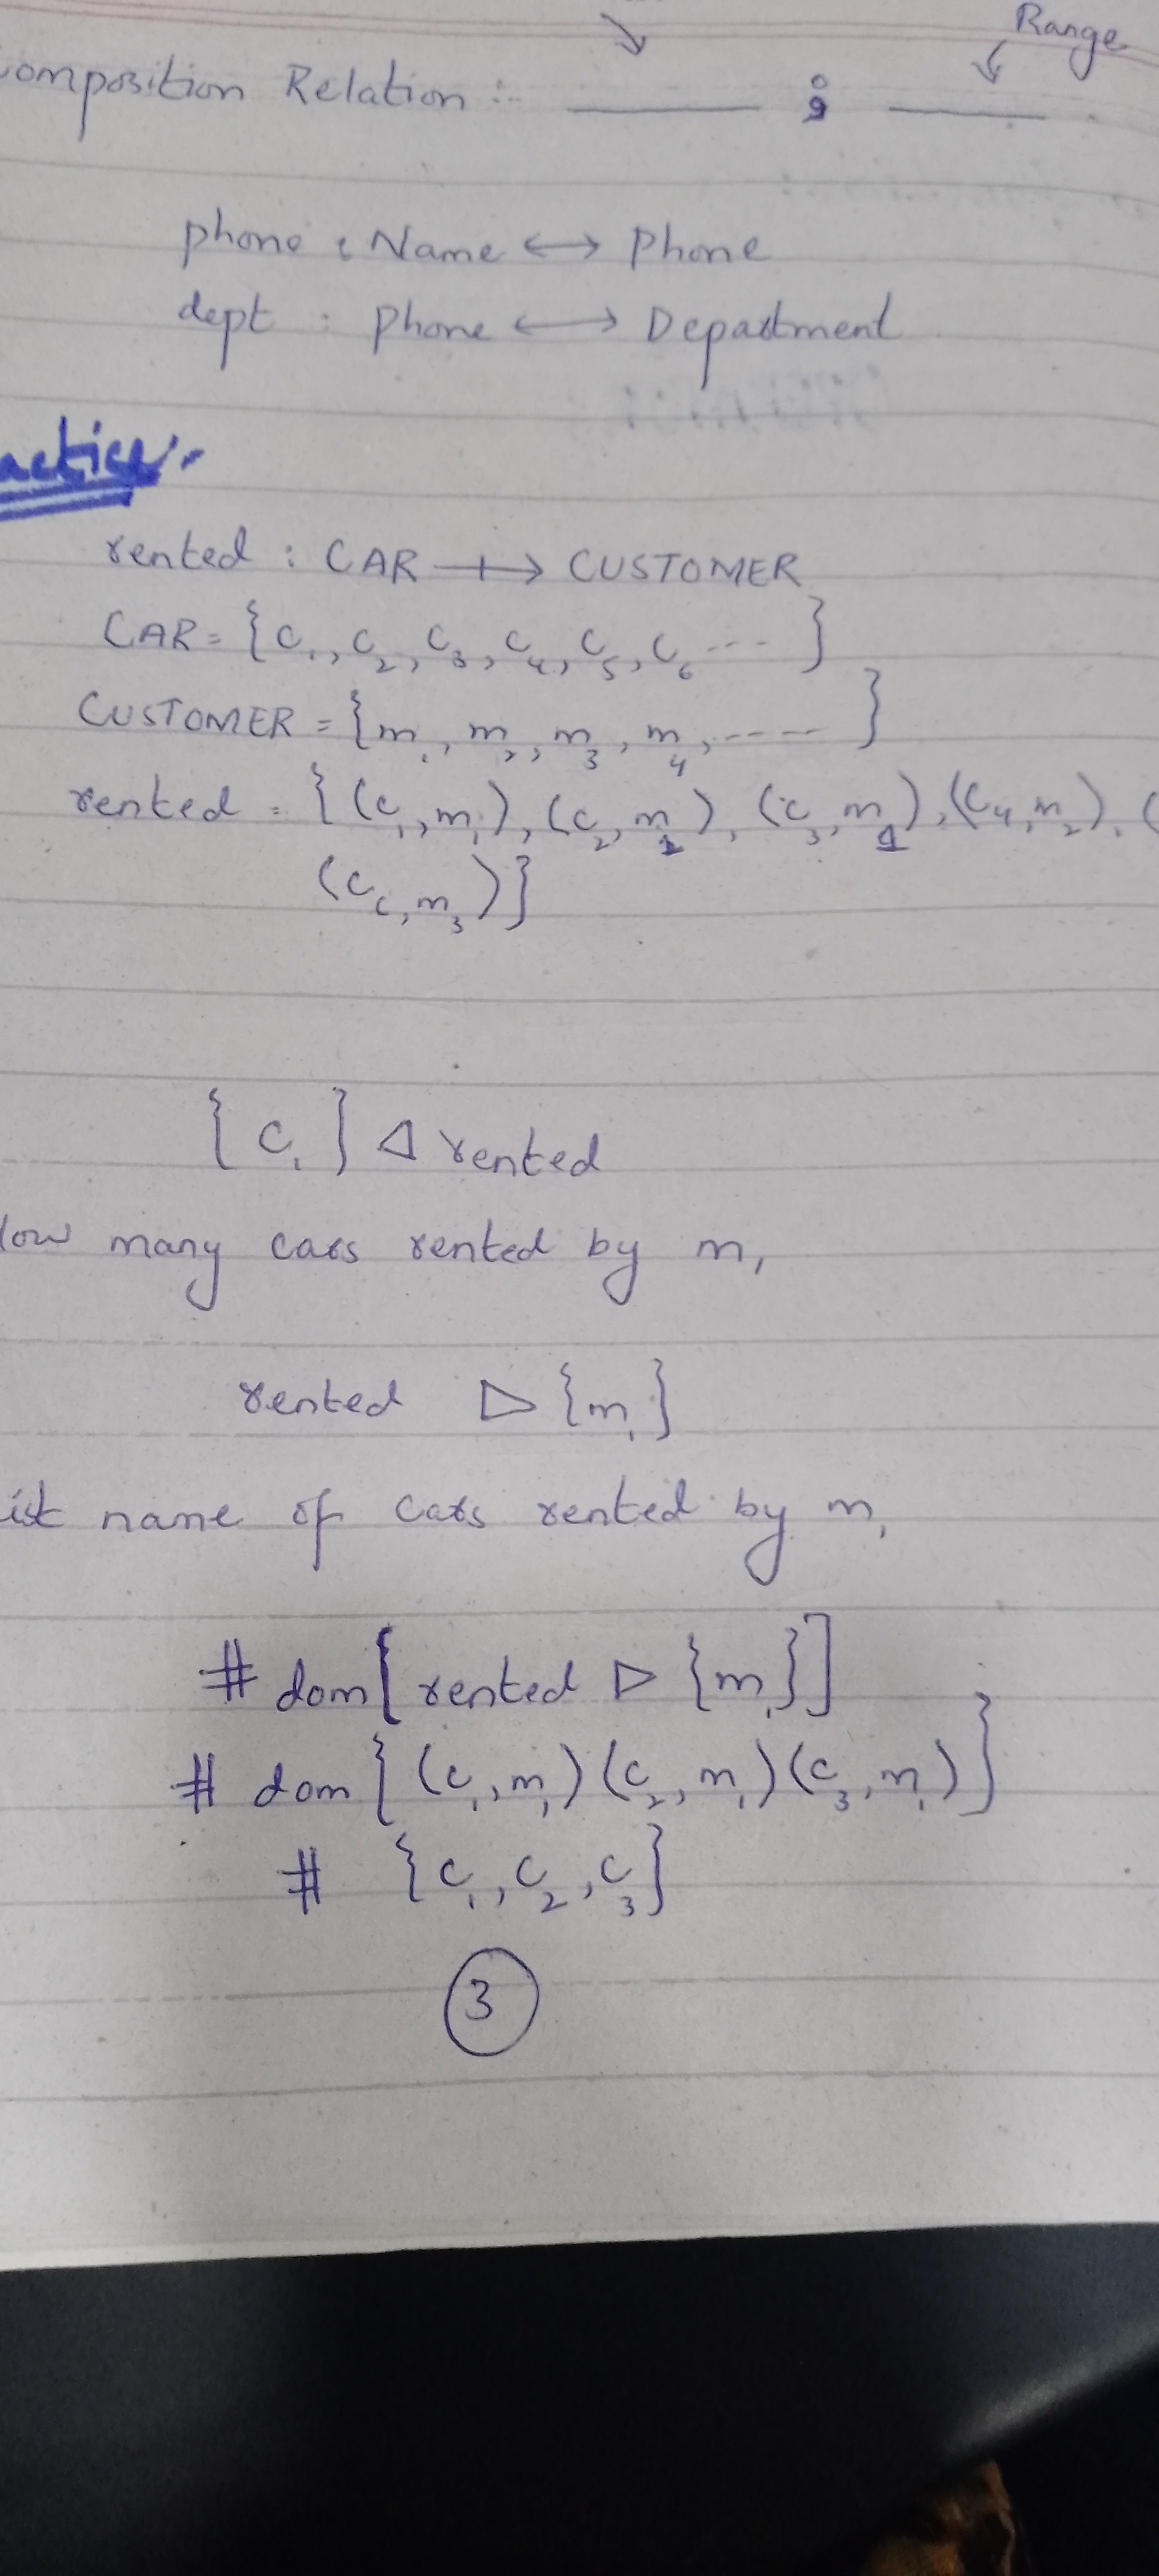 Range
omposition Relation :- ______ ⨟ ______
phone : Name ↔ Phone
dept : Phone ↔ Department
actise:-
rented : CAR ⇸ CUSTOMER
CAR = {C₁, C₂, C₃, C₄, C₅, C₆ --- }
CUSTOMER = {m₁, m₂, m₃, m₄, ----- }
rented = {(c₁,m₁), (c₂,m₁), (c₃,m₁), (C₄,m₂), (
(C₆,m₃)}
{C₁} ◁ rented
How many cars rented by m₁
rented ▷ {m₁}
ist name of cars rented by m₁
# dom[rented ▷ {m₁}]
# dom{(c₁,m₁)(c₂,m₁)(c₃,m₁)}
# {c₁, c₂, c₃}
3